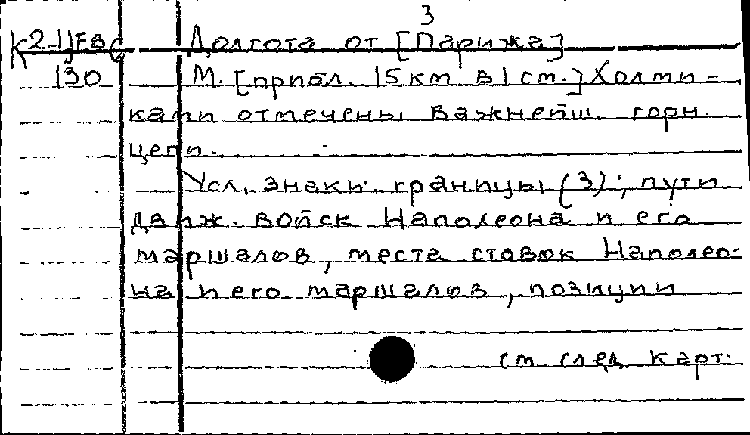 3
К2-1/FBG Долгота от [Парижа]
130 М. [прибл. 15 км в 1 см.] Холми-
ками отмечены важнейш. горн.
цепи.
Усл. знаки: границы (3); пути
движ. войск Наполеона и его
маршалов, места ставок Наполео-
на и его маршалов, позиции
см. след. карт.